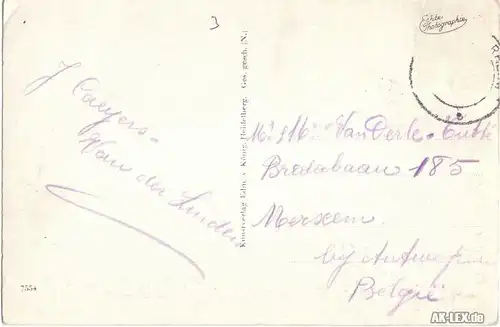 3
Echte
Photographie
J Caeyers-
Van der Linden
Kunstverlag Edm. v. König, Heidelberg. Ges. gesch. [N.]
Van Derle-
Bredabaan 185
Merxem
bij Antwerpen
België
7554
AK-LEX.de